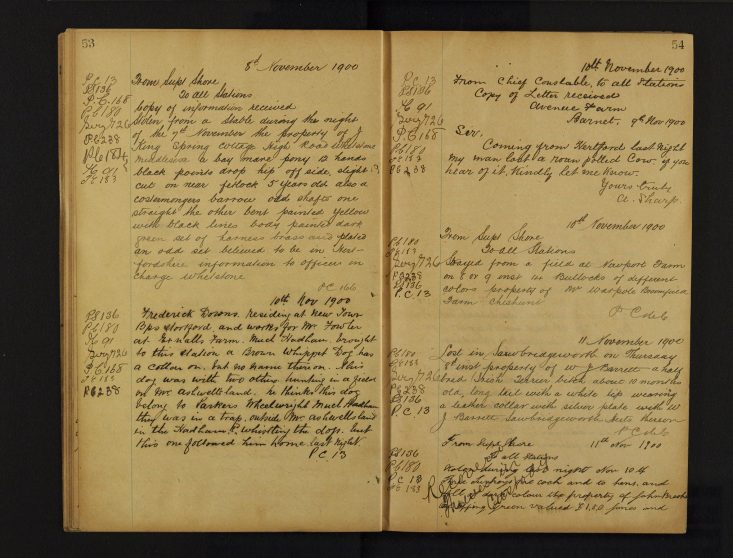 53
8th November 1900
P.C. 13
PS136
P.C. 168
PC180
Serg 726
PC238
K 91
PC183
From Supt Shore
To all Stations
Copy of information received
Stolen from a Stable during the night
of the 7th November the property of J
King Spring Cottage High Road Whetstone
Middlesex a bay mare pony 13 hands
black points drop hip off side, slight
cut on near fetlock 5 years old also a
costermongers barrow odd shafts one
straight the other bent painted yellow
with black lines body painted dark
green set of harness brass and plated
an odd set believed to be in Hert-
fordshire information to officer in
Charge Whetstone
PC 166
10th Nov 1900
PS136
PC180
K 91
Serg 726
P.C. 168
PC183
PC238
Frederick residing at New Town
Bps Stortford, and works for Mr Fowler
at Farm. Much Hadham. brought
to this Station a Brown Whippet Dog has
a collar on. but no name thereon. This
dog was with two others hunting in a field
on Mr land. he thinks this dog
belong to Parker. Wheelwright Much Hadham
they was in a trap outside Mr land
in the Hadham whistling the dogs. but
this one followed him home last night.
P.C. 13
54
10th November 1900
P.C. 13
PS136
K 91
Serg 726
P.C. 168
PC180
PC183
PC238
From Chief Constable, to all Stations
Copy of Letter received
Avenue Farm
Barnet, 9th Nov 1900
Sir.
Coming from Hertford last night
My man lost a Roan polled Cow. if you
hear of it. Kindly let me know.
Yours truly
A. Sharp.
10th November 1900
PC180
PC183
Serg 726
PC238
PS136
P.C. 13
From Supt Shore
To all Stations
Strayed from a field at Newport Farm
on 8 or 9 inst 14 Bullocks of different
colors property of Mr Warpole Broomfield
Farm Cheshunt
11 November 1900
PC180
PC183
Serg 726
PC238
PS136
P.C. 13
Lost in Sawbridgeworth on Thursday
8th inst property of W J Barrett a half
bred Irish Terrier bitch about 10 months
old, long tail with a white tip wearing
a leather collar with silver plate with W
J Barrett Sawbridgeworth Herts thereon
From Supt Shore 11th Nov 1900
PS136
PC180
P.C. 13
PC183
To all Stations
Stolen during last night Nov 10th
cock and 10 hens. and
colour the property of John
Green valued and